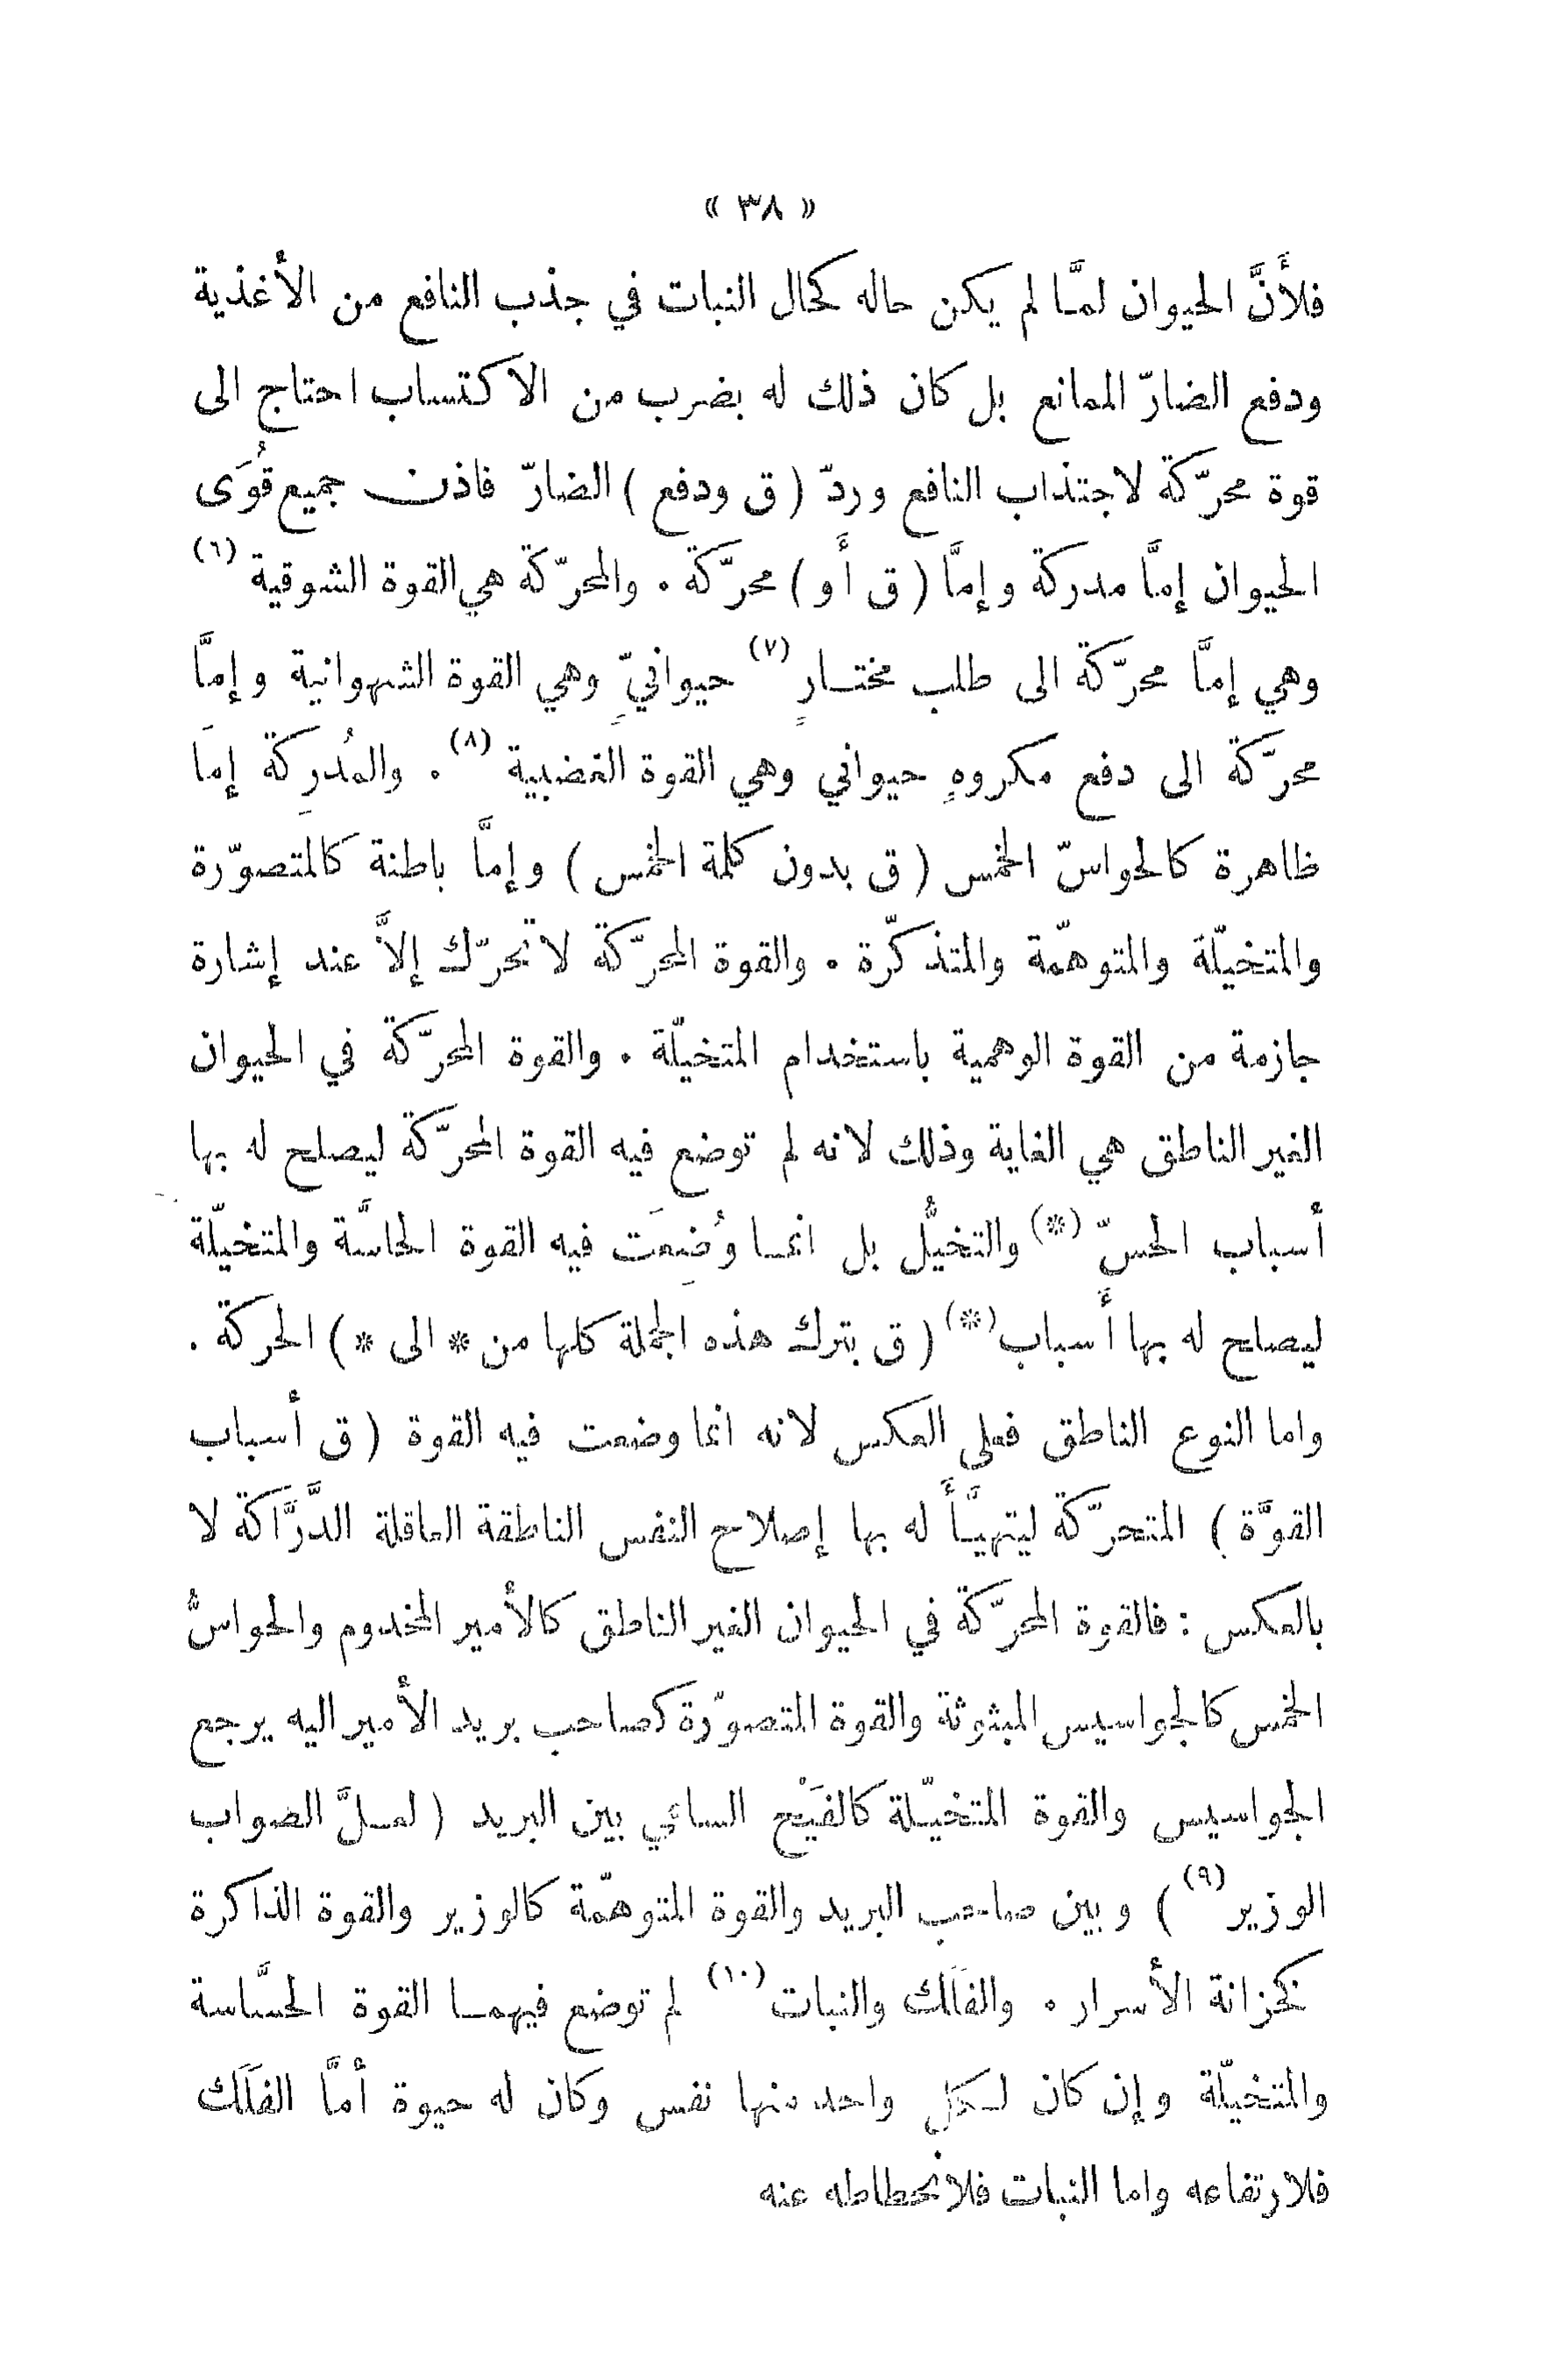 « ٣٨ »
فلأَنَّ الحيوان لمَّا لم يكن حاله كحال النبات في جذب النافع من الأغذية
ودفع الضارّ الممانع بل كان ذلك له بضرب من الاكتساب احتاج الى
قوة محرّكة لاجتذاب النافع وردّ (ق ودفع) الضارّ فاذن جميع قُوَى
الحيوان إمَّا مدركة وإمَّا (ق أَو) محرّكة . والمحرّكة هي القوة الشوقية (٦)
وهي إمَّا محرّكة الى طلب مختارٍ (٧) حيوانيّ وهي القوة الشهوانية وإمَّا
محرّكة الى دفع مكروهٍ حيواني وهي القوة الغضبية (٨) . والمُدرِكة إمَا
ظاهرة كالحواسّ الخمس (ق بدون كلمة الخمس) وإمَّا باطنة كالمتصوّرة
والمتخيلّة والمتوهمّة والمتذكّرة . والقوة المحرّكة لا تحرّك إلاَّ عند إشارة
جازمة من القوة الوهمية باستخدام المتخيلّة . والقوة المحرّكة في الحيوان
الغير الناطق هي الغاية وذلك لانه لم توضع فيه القوة المحرّكة ليصلح له بها
أسباب الحسّ (*) والتخيُّل بل انما وُضِعَت فيه القوة الحاسَّة والمتخيلّة
ليصلح له بها أَسباب (*) (ق بترك هذه الجملة كلها من * الى *) الحركة .
واما النوع الناطق فعلى العكس لانه انما وضعت فيه القوة (ق أسباب
القوَّة) المتحرّكة ليتهيَّأَ له بها إصلاح النفس الناطقة العاقلة الدَّرَّاكة لا
بالعكس : فالقوة المحرّكة في الحيوان الغير الناطق كالأمير المخدوم والحواسُّ
الخمس كالجواسيس المبثوثة والقوة المتصوّرة كصاحب بريد الأمير اليه يرجع
الجواسيس والقوة المتخيّلة كالفَيْج الساعي بين البريد (لعلَّ الصواب
الوزير (٩)) وبين صاحب البريد والقوة المتوهمّة كالوزير والقوة الذاكرة
كخزانة الأسرار . والفَلَك والنبات (١٠) لم توضع فيهما القوة الحسَّاسة
والمتخيلّة وإن كان لكل واحد منها نفس وكان له حيوة أمَّا الفَلَك
فلارتفاعه واما النبات فلانحطاطه عنه